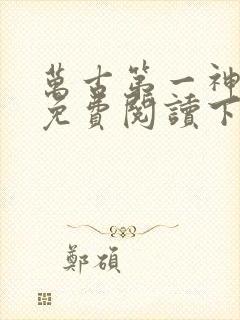 萬古第一神
免費閱讀下
鄭碩